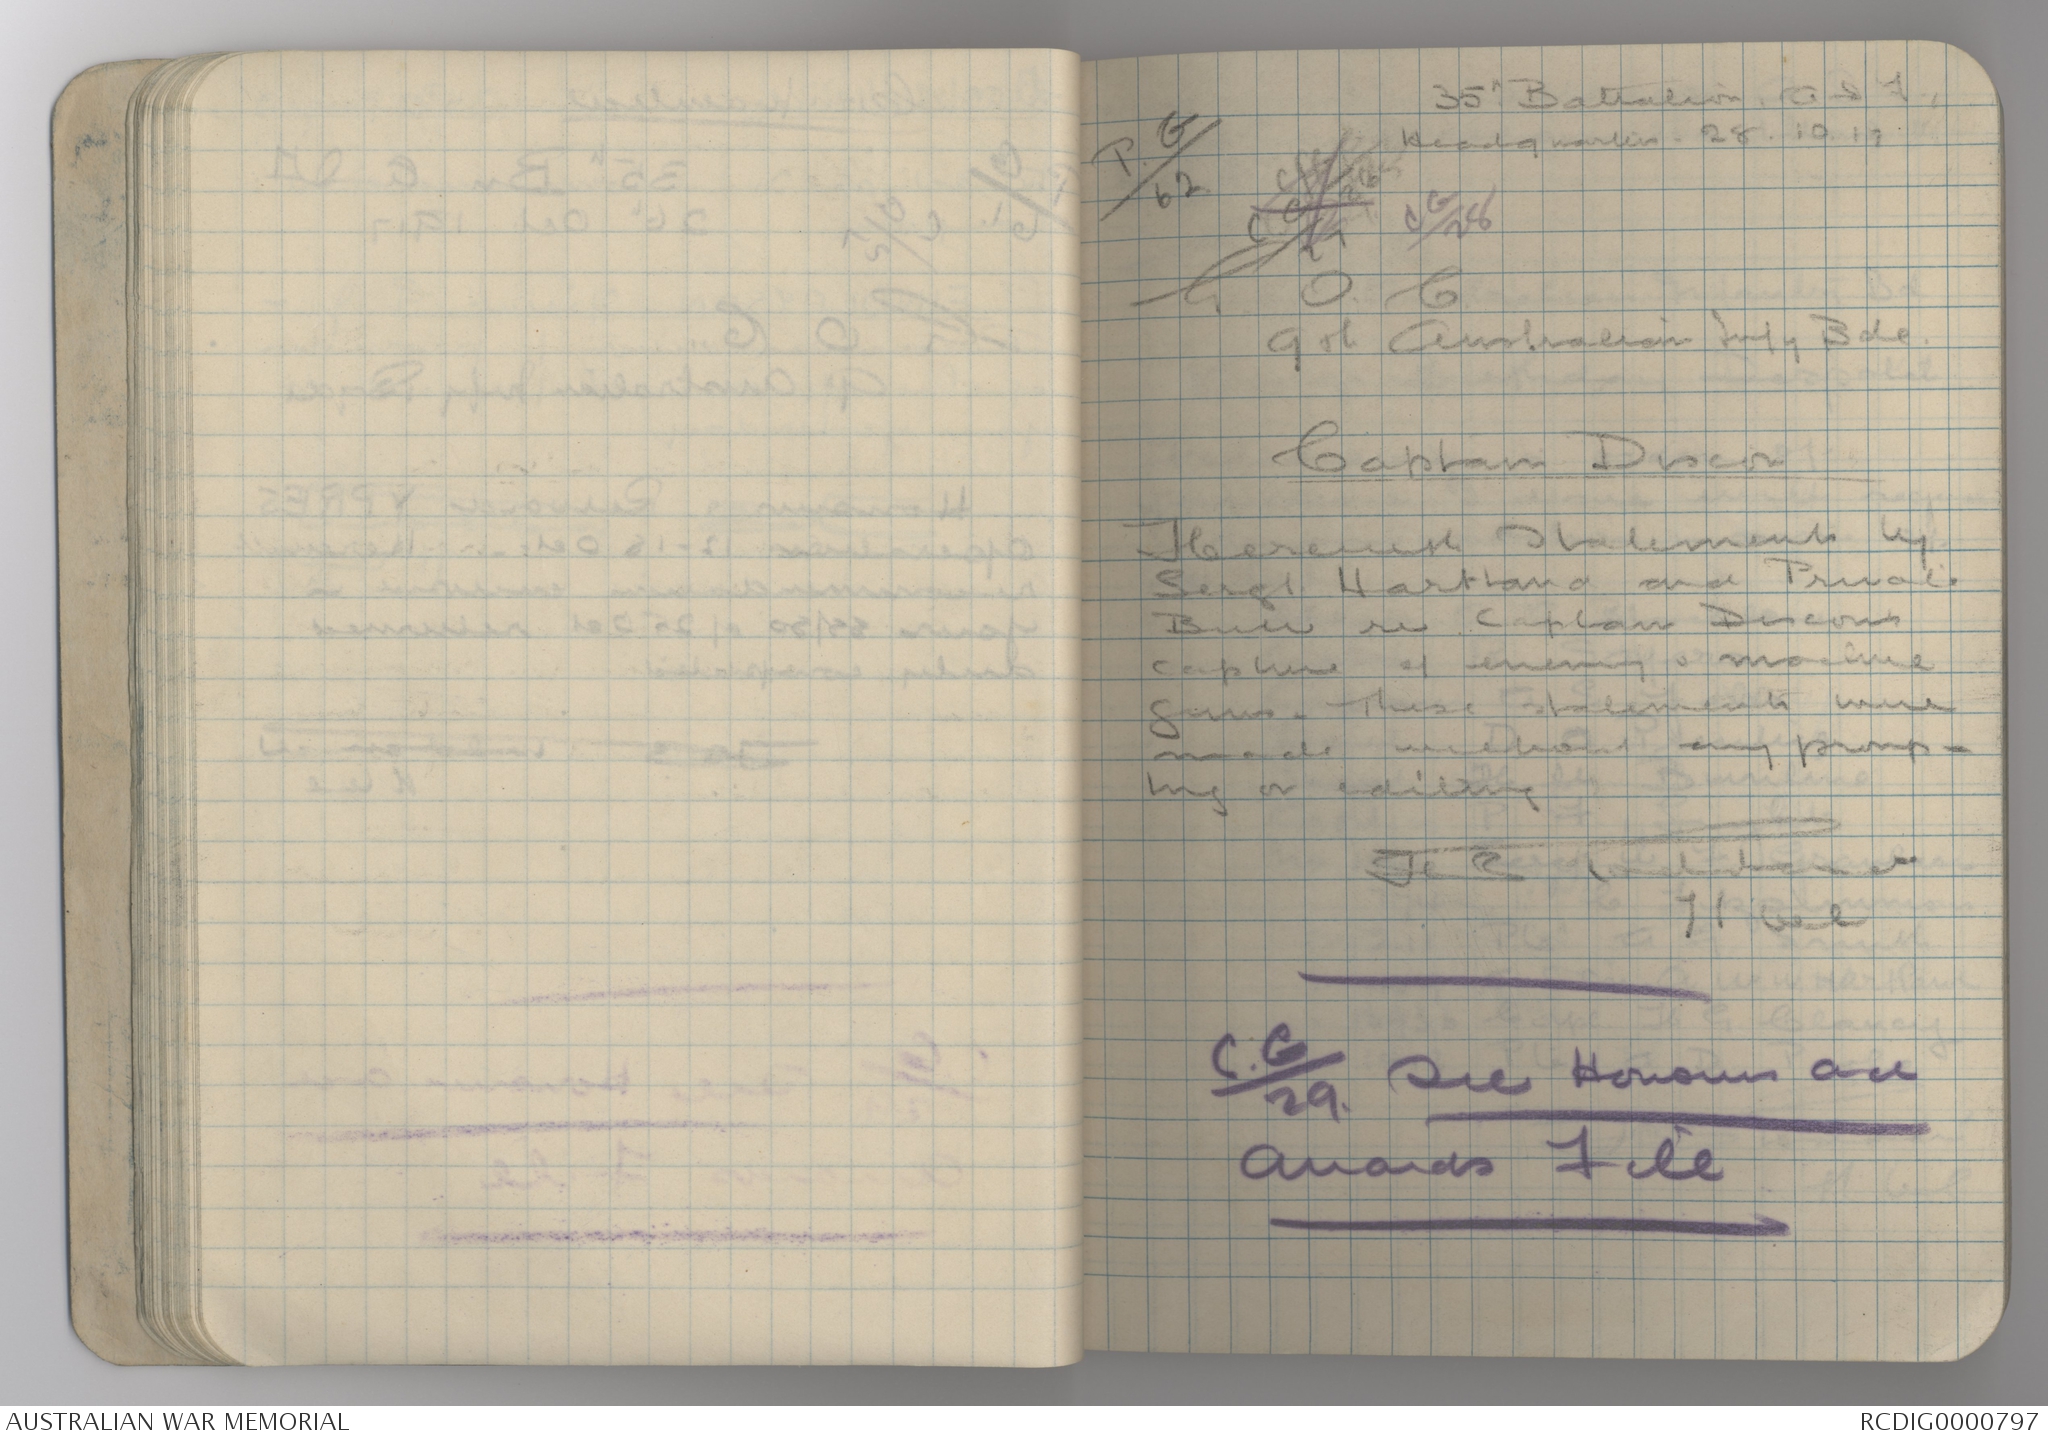 35th Battalion, A I F,
Headquarters. 28.10.17
P. G/62
C G/28
G. O. C
9th Australian Infy Bde.
Captain Dixon
Herewith Statements by
Sergt Hartland and Private
re Captain Dixons
capture of enemy machine
guns. These statements were
made without any promp-
ting or editing
H A Goddard
Lt Col
C.G/29. See Honours and
Awards File
AUSTRALIAN WAR MEMORIAL
RCDIG0000797